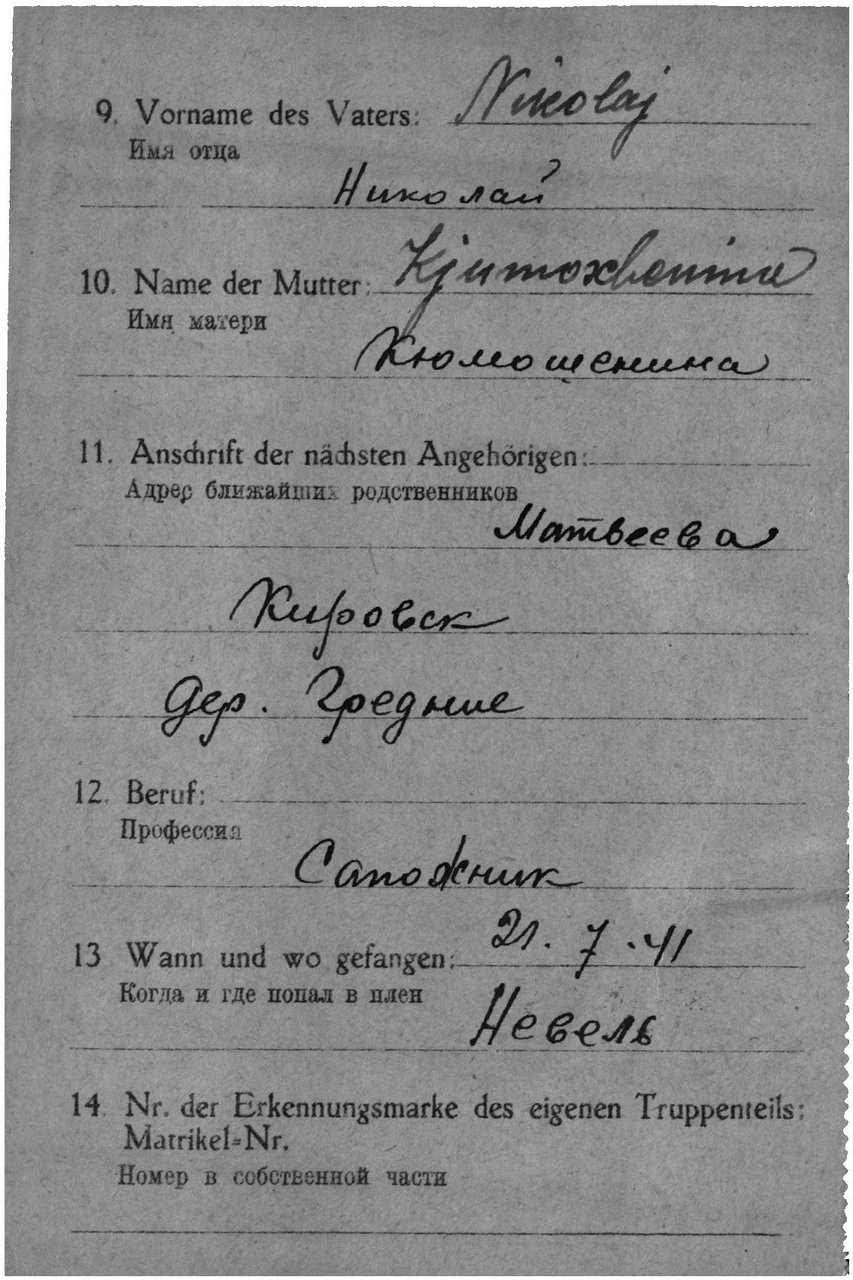 9. Vorname des Vaters: Nikolaj
Имя отца
Николай
10. Name der Mutter: Kjumoschenina
Имя матери
Кюмошенина
11. Anschrift der nächsten Angehörigen:
Адрес ближайших родственников
Матвеева
Кировск
дер. Гредние
12. Beruf:
Профессия
Сапожник
13 Wann und wo gefangen: 21. 7. 41
Когда и где попал в плен
Невель
14 Nr. der Erkennungsmarke des eigenen Truppenteils:
Matrikel-Nr.
Номер в собственной части